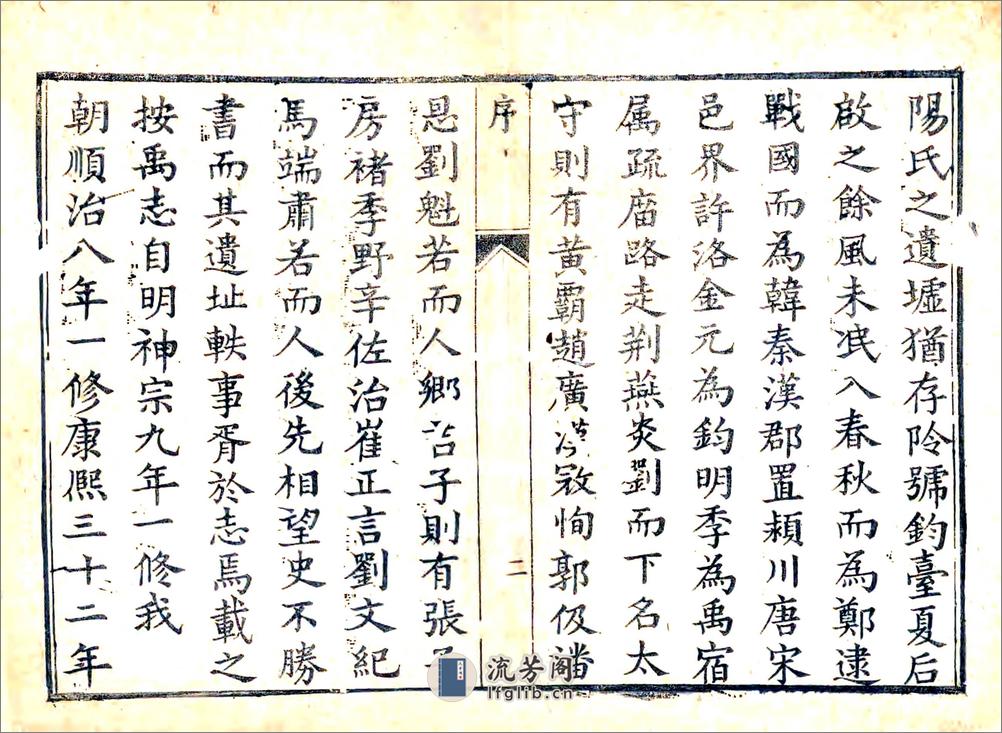 陽氏之遺墟猶存阾號鈞臺夏后
啟之餘風未泯入春秋而為鄭逮
戰國而為韓秦漢郡置潁川唐宋
邑界許洛金元為鈞明季為禹宿
属疏廇路走荆燕炎劉而下名太
守則有黄霸趙廣漢寇恂郭伋潘
序
二
恳劉魁若而人鄉君子則有張子
房褚季野辛佐治崔正言劉文紀
馬端肅若而人後先相望史不勝
書而其遺址軼事胥於志焉載之
按禹志自明神宗九年一修我
朝順治八年一修康熙三十二年
流芳阁
lfglib.cn